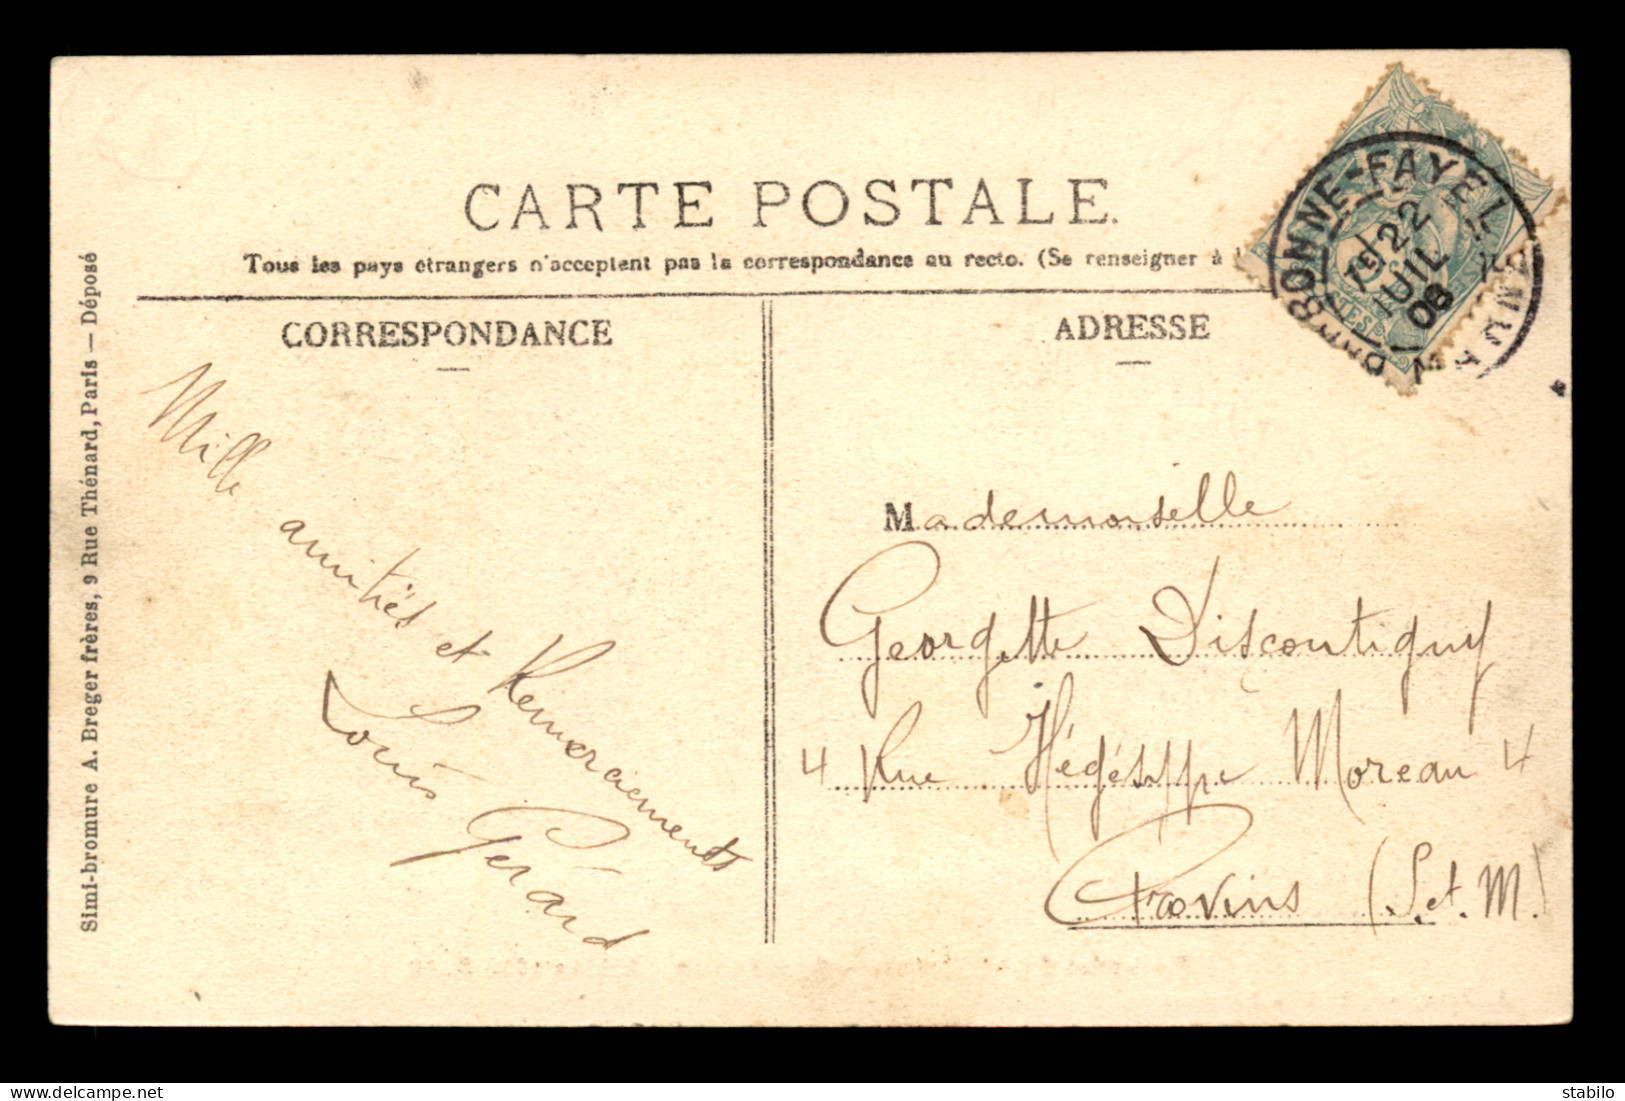 CARTE POSTALE.
Tous les pays étrangers n'acceptent pas la correspondance au recto. (Se renseigner à l
CORRESPONDANCE
ADRESSE
BONNE-FAYEL
22
JUIL
08
MARNE
Simi-bromure A. Breger frères, 9 Rue Thénard, Paris — Déposé
Mille
amitiés et Remerciements
Louis
Gérard
Mademoiselle
Georgette Discontigny
4 Rue Hégésippe Moreau 4
Provins (S. et. M.)
stabilo